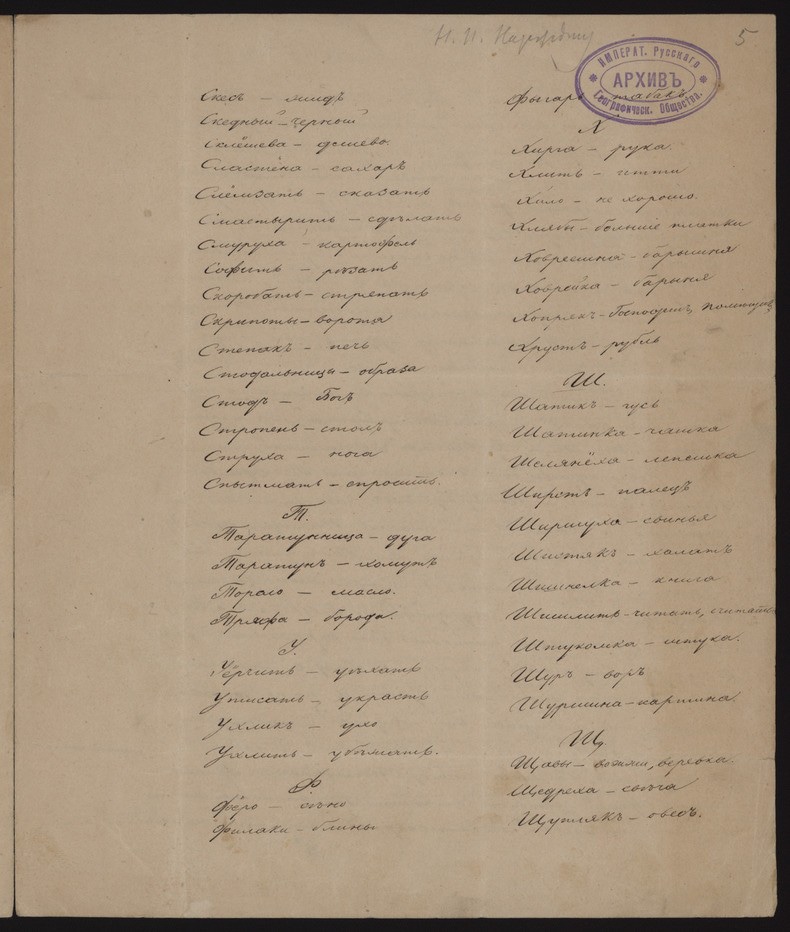 5
ИМПЕРАТ. Русскаго
АРХИВЪ
Географическ. Общества.
Скесъ — жидъ
Скедный — черный
Склёшева — дешево.
Сластёна — сахаръ
Слёмзать — сказать
Смастырить — сдѣлать
Смуруха — картофель
Софить — рѣзать
Скоробать — стряпать
Скрипоты — ворота
Степакъ — печь
Стодальницы — образа
Стодъ — Богъ
Стропень — столъ
Струха — нога
Спытмать — спросить.
Т.
Таратунница — дуга
Таратунъ — хомутъ
Торало — масло.
Тряфа — борода.
У.
Уёрчить — уѣхать
Уписать — украсть
Ухликъ — ухо
Ухлить — убѣжать.
Ф
Фёро — сѣно
Филаки — блины
Фыгаръ табакъ
Х
Хирга — рука
Хлить — итти
Хило — не хорошо.
Хлябы — большіе платки
Ховрешина — барышня
Ховрейка — барыня
Хопрякъ — Господинъ, помещикъ
Хрустъ — рубль
Ш.
Шатикъ — гусь
Шатинка — чашка
Шелянёха — лепешка
Широтъ — палецъ
Ширшуха — свинья
Шистякъ — халатъ
Шишнелка — книга
Шишлить — читать, считать
Штукомка — штука.
Шуръ — воръ
Шуршина — картина.
Щ.
Щавы — возжи, веревка.
Щедреха — свѣча
Щуплякъ — овесъ.